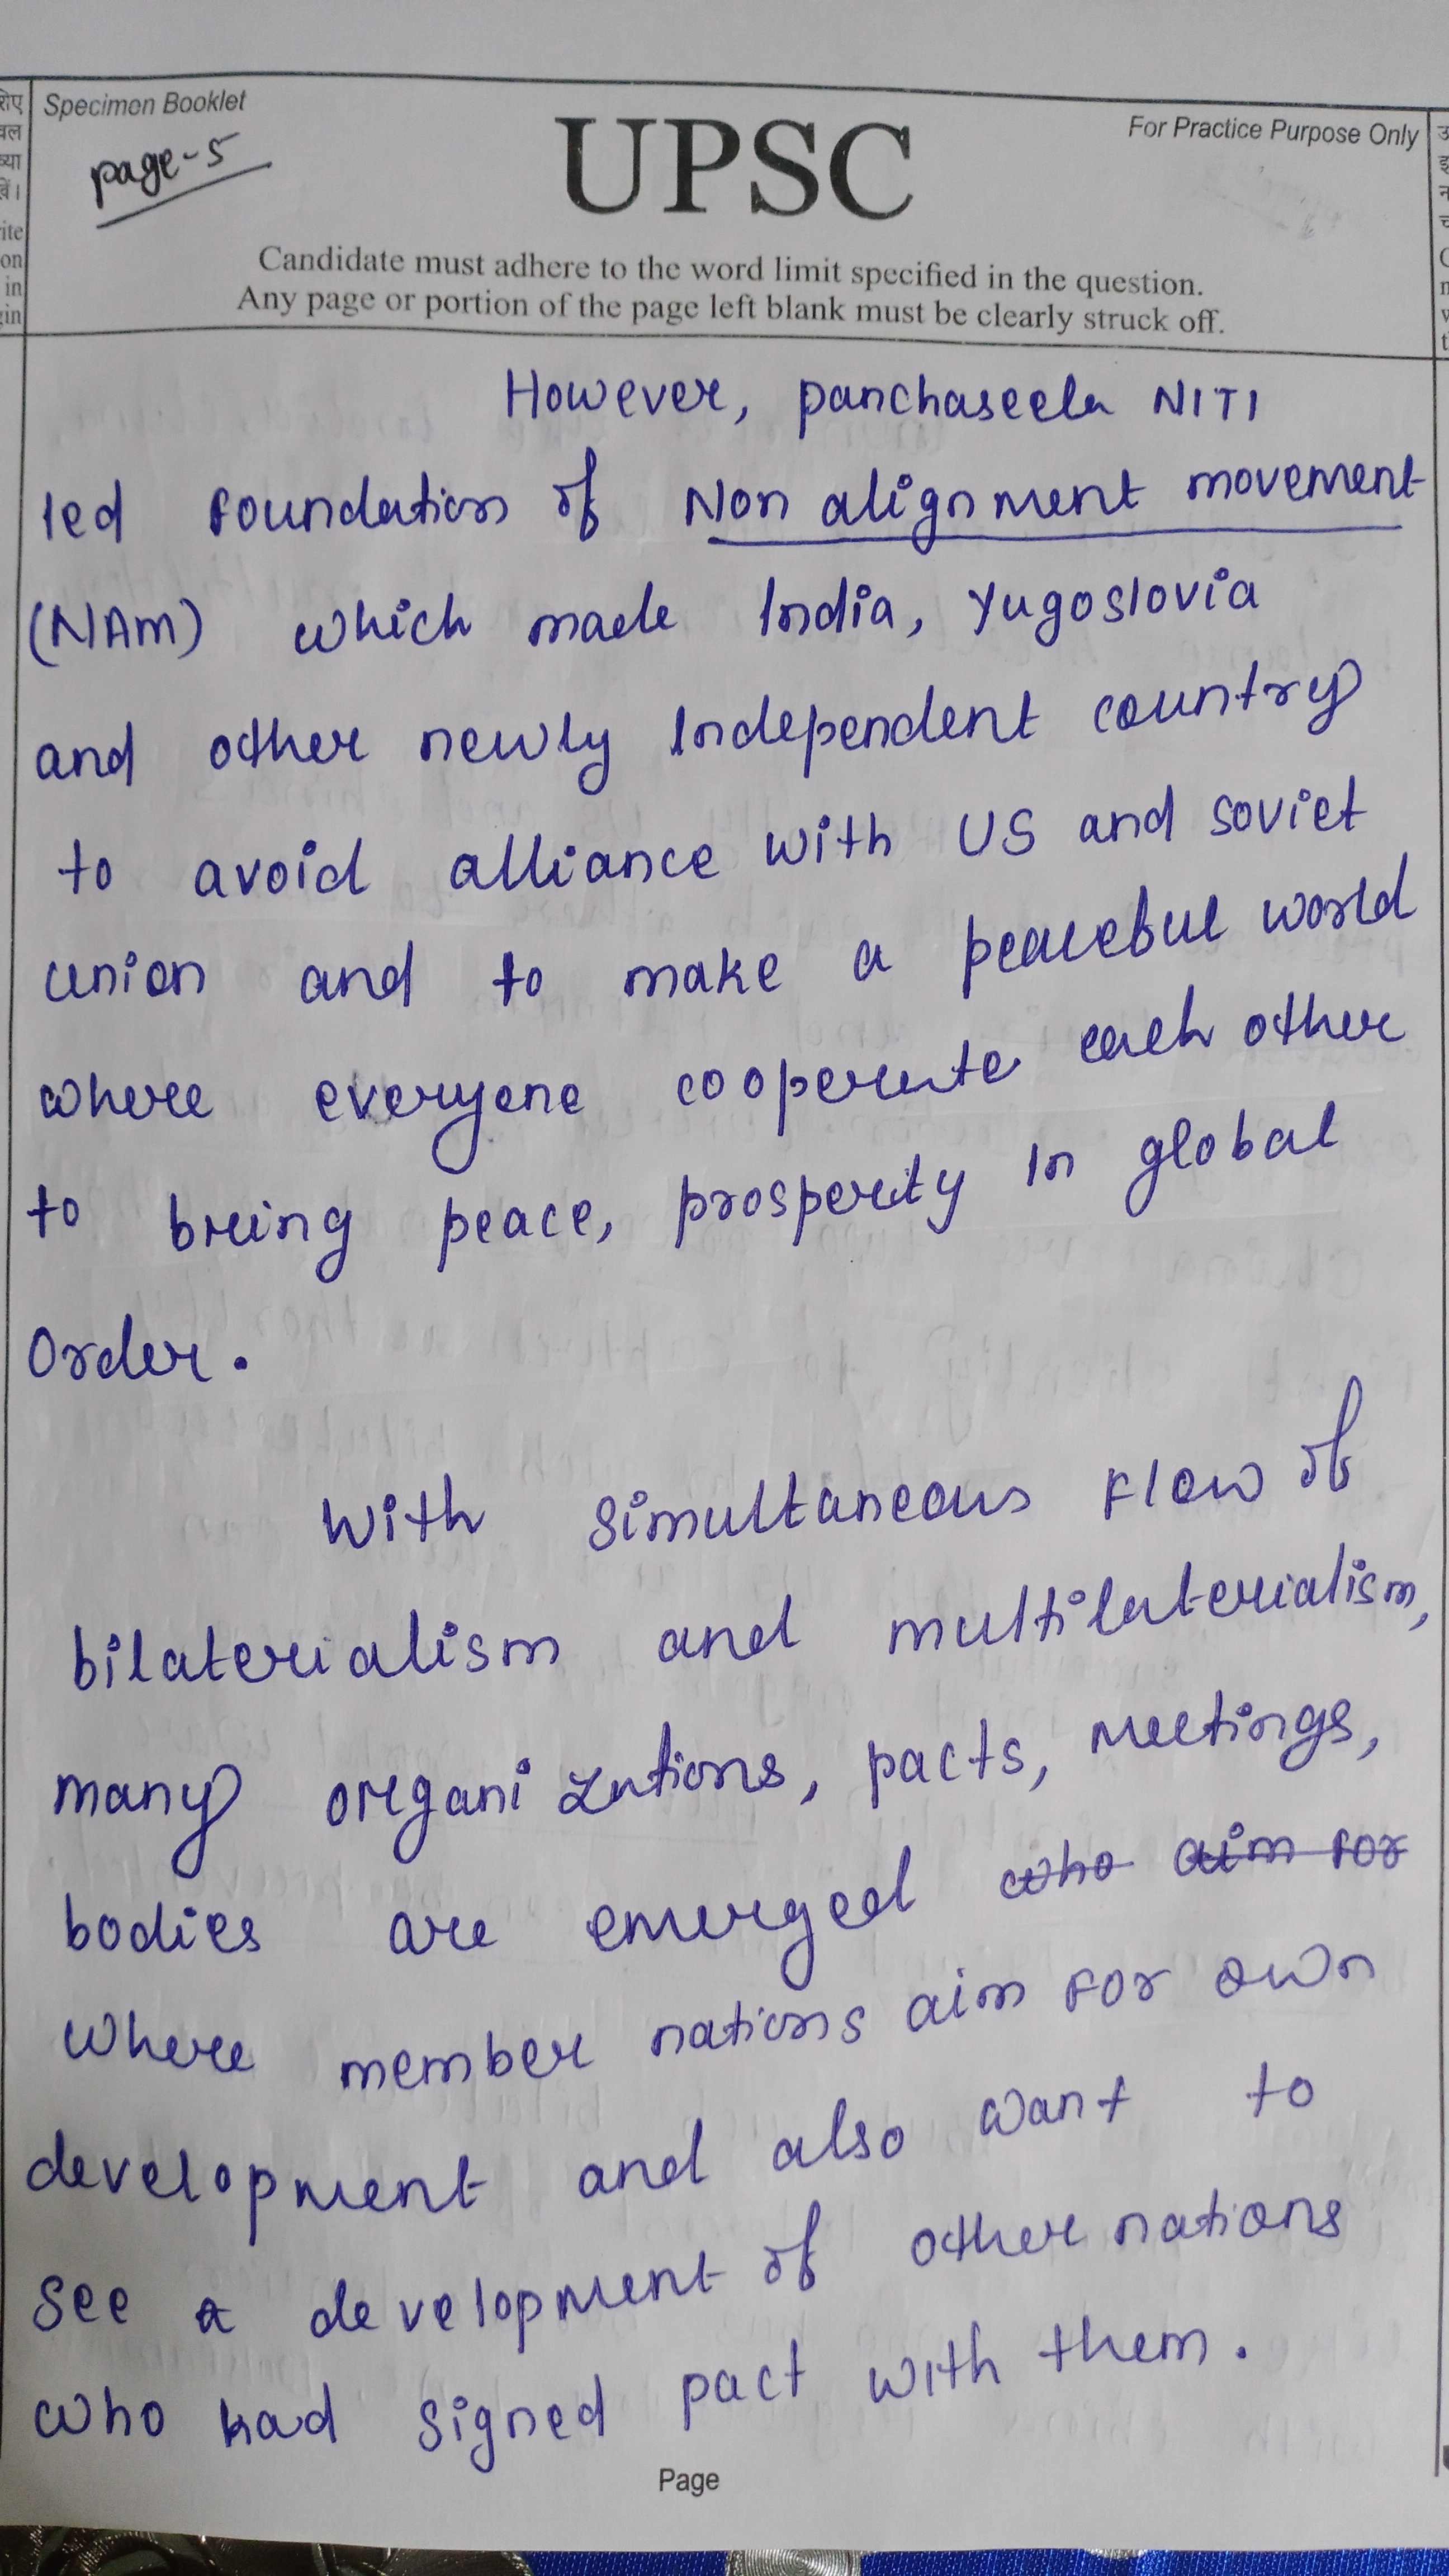 Specimen Booklet
For Practice Purpose Only
page-5
UPSC
Candidate must adhere to the word limit specified in the question.
Any page or portion of the page left blank must be clearly struck off.
However, panchaseela NITI
led foundation of Non alignment movement
(NAM) which made India, Yugoslovia
and other newly Independent country
to avoid alliance with US and soviet
union and to make a peaceful world
where everyone cooperate each other
to bring peace, prosperity in global
order.
With simultaneous flow of
bilaterialism and multilaterialism,
many organizations, pacts, meetings,
bodies are emerged who aim for
where member nations aim for own
development and also want to
see a development of other nations
who had signed pact with them.
Page